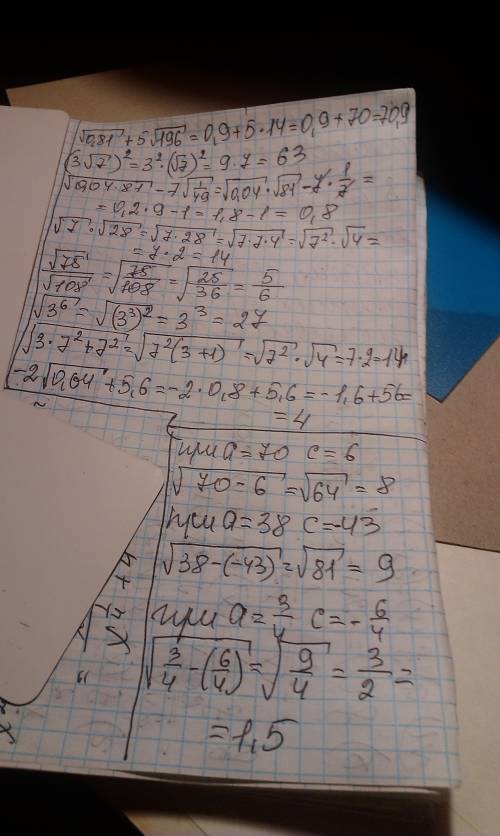 √0,81 + 5√196 = 0,9+5·14=0,9+70=70,9
(3√7)² = 3²·(√7)² = 9·7 = 63
√0,04·81 - 7√1/49 = √0,04·√81 - 7·1/7 =
= 0,2·9-1=1,8-1= 0,8
√7·√28 = √7·28 = √7·7·4 = √7²·√4 =
= 7·2 = 14
√75/√108 = √75/108 = √25/36 = 5/6
√3⁶ = √(3³)² = 3³ = 27
√3·7²+7² = √7²(3+1) = √7²·√4 = 7·2=14
-2√0,64 + 5,6 = -2·0,8+5,6 = -1,6+56=
= 4
при a=70 c=6
√70-6 = √64 = 8
при a=38 c=-43
√38-(-43) = √81 = 9
при a=3/4 c=-6/4
√3/4-(6/4) = √9/4 = 3/2 =
=1,5